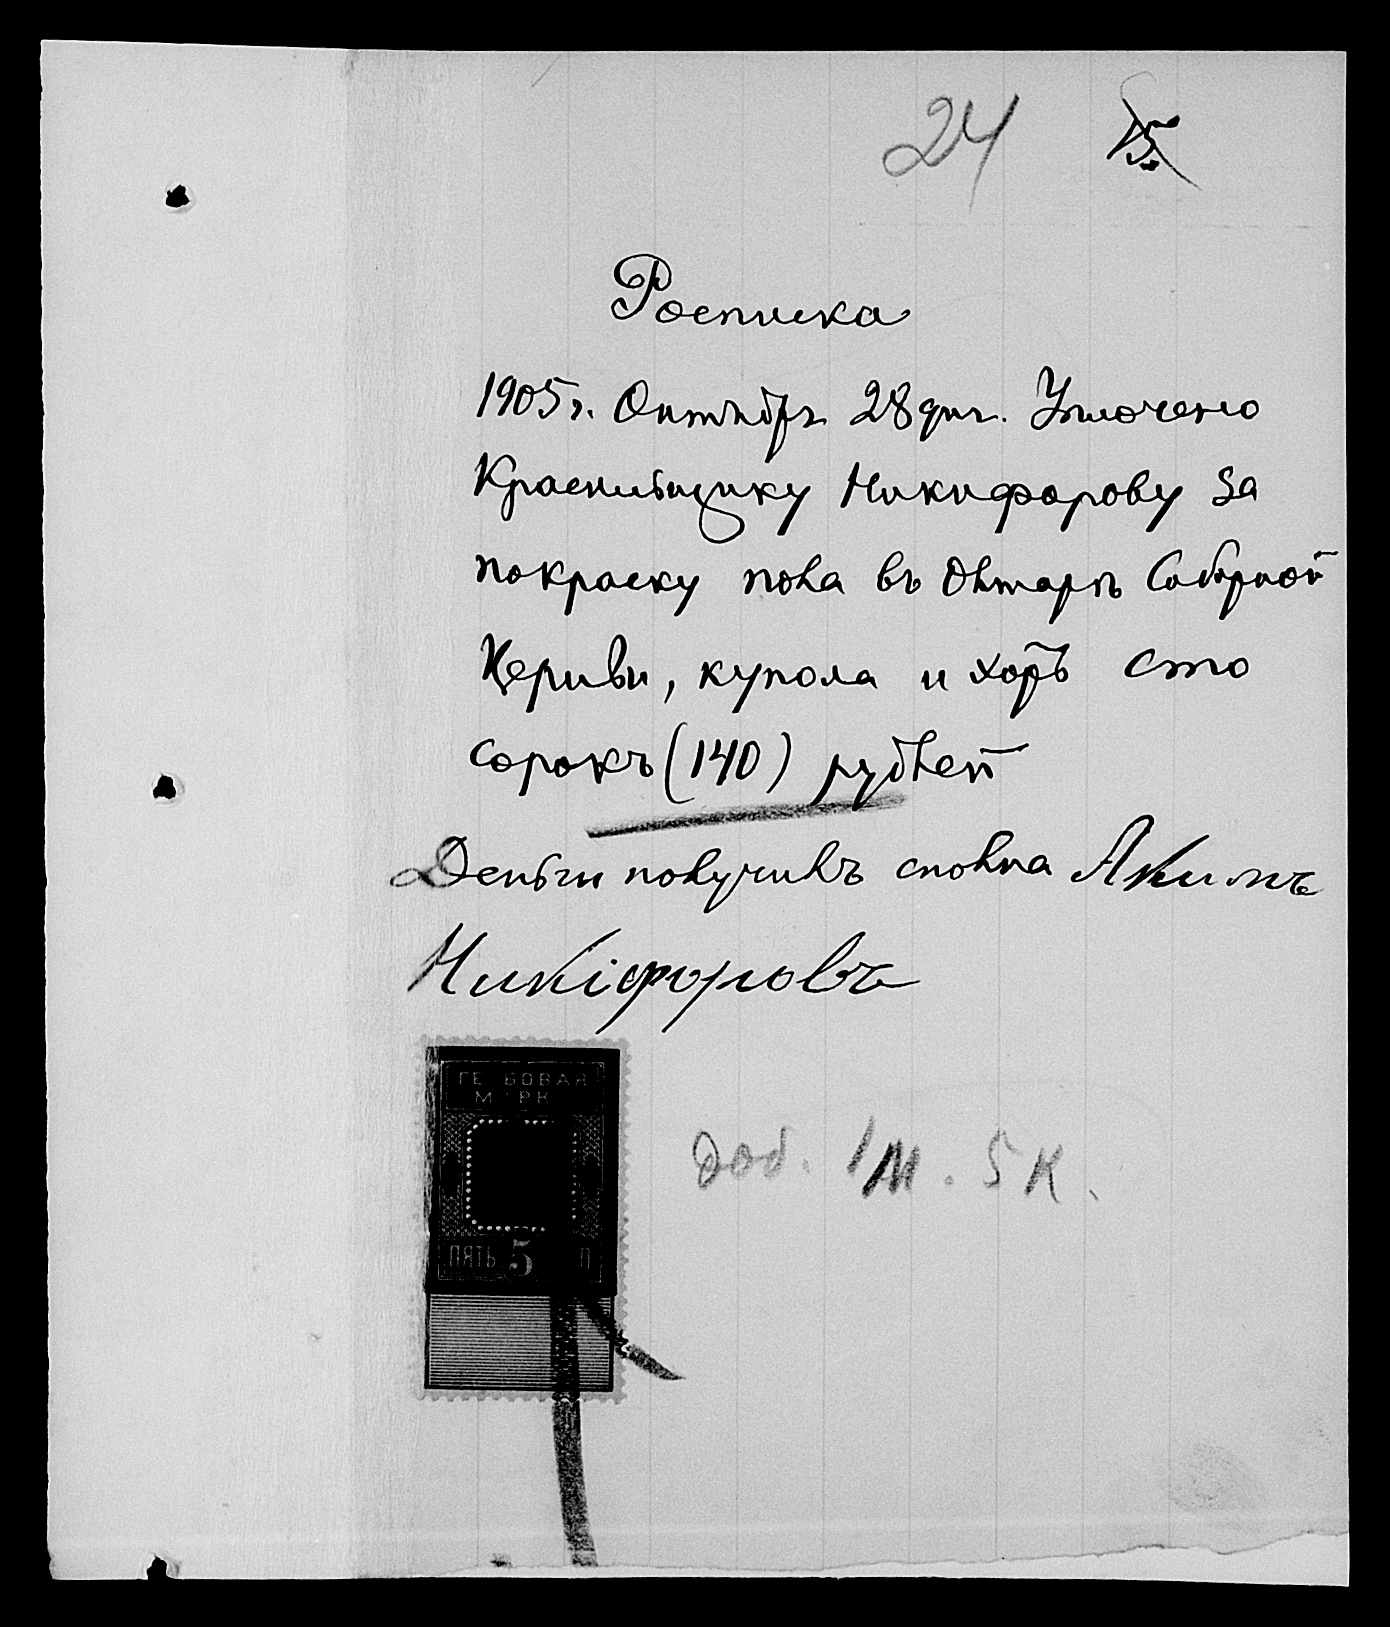 24
Росписка
1905 г. Октября 28 дня. Уплочено
Красильщику Никифорову за
покраску пола въ Олтаръ Соборной
Церкви, купола и хоръ сто
сорокъ (140) рублей
Деньги получилъ сполна Акимъ
Никіфоровъ
ГЕ БОВАЯ
М РК
ПЯТЬ 5 П
доб. 1 м. 5 к.